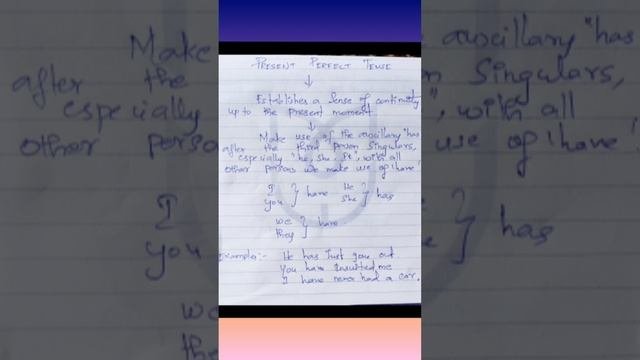 PRESENT PERFECT TENSE
Establishes a sense of continuity
up to the present moment.
Make use of the auxillary "has
after the third person singulars,
especially "he, she, It", with all
other persons we make use of 'have'
I
you } have
He
She } has
we
they } have
Example:- He has Just gone out
You have Insulted me
I have never had a car.